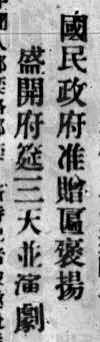 國民政府准贈匾褒揚
盛開府筵三大並演劇